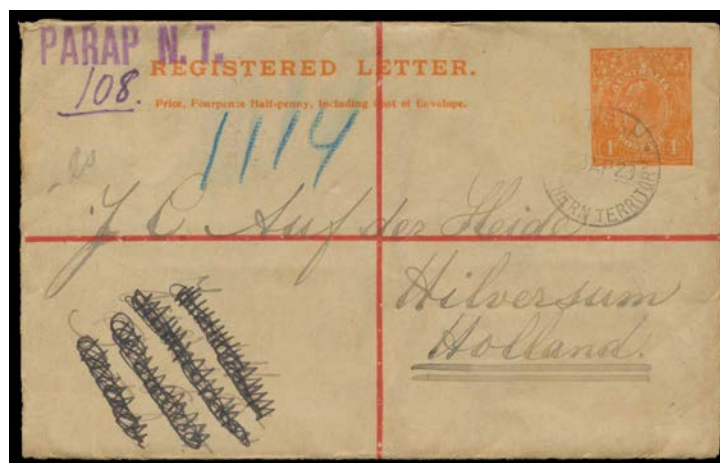 PARAP N.T.
108.
REGISTERED LETTER.
Price, Fourpence Half-penny, Including Cost of Envelope.
1114
J. C. Auf der Heide
Hilversum
Holland.